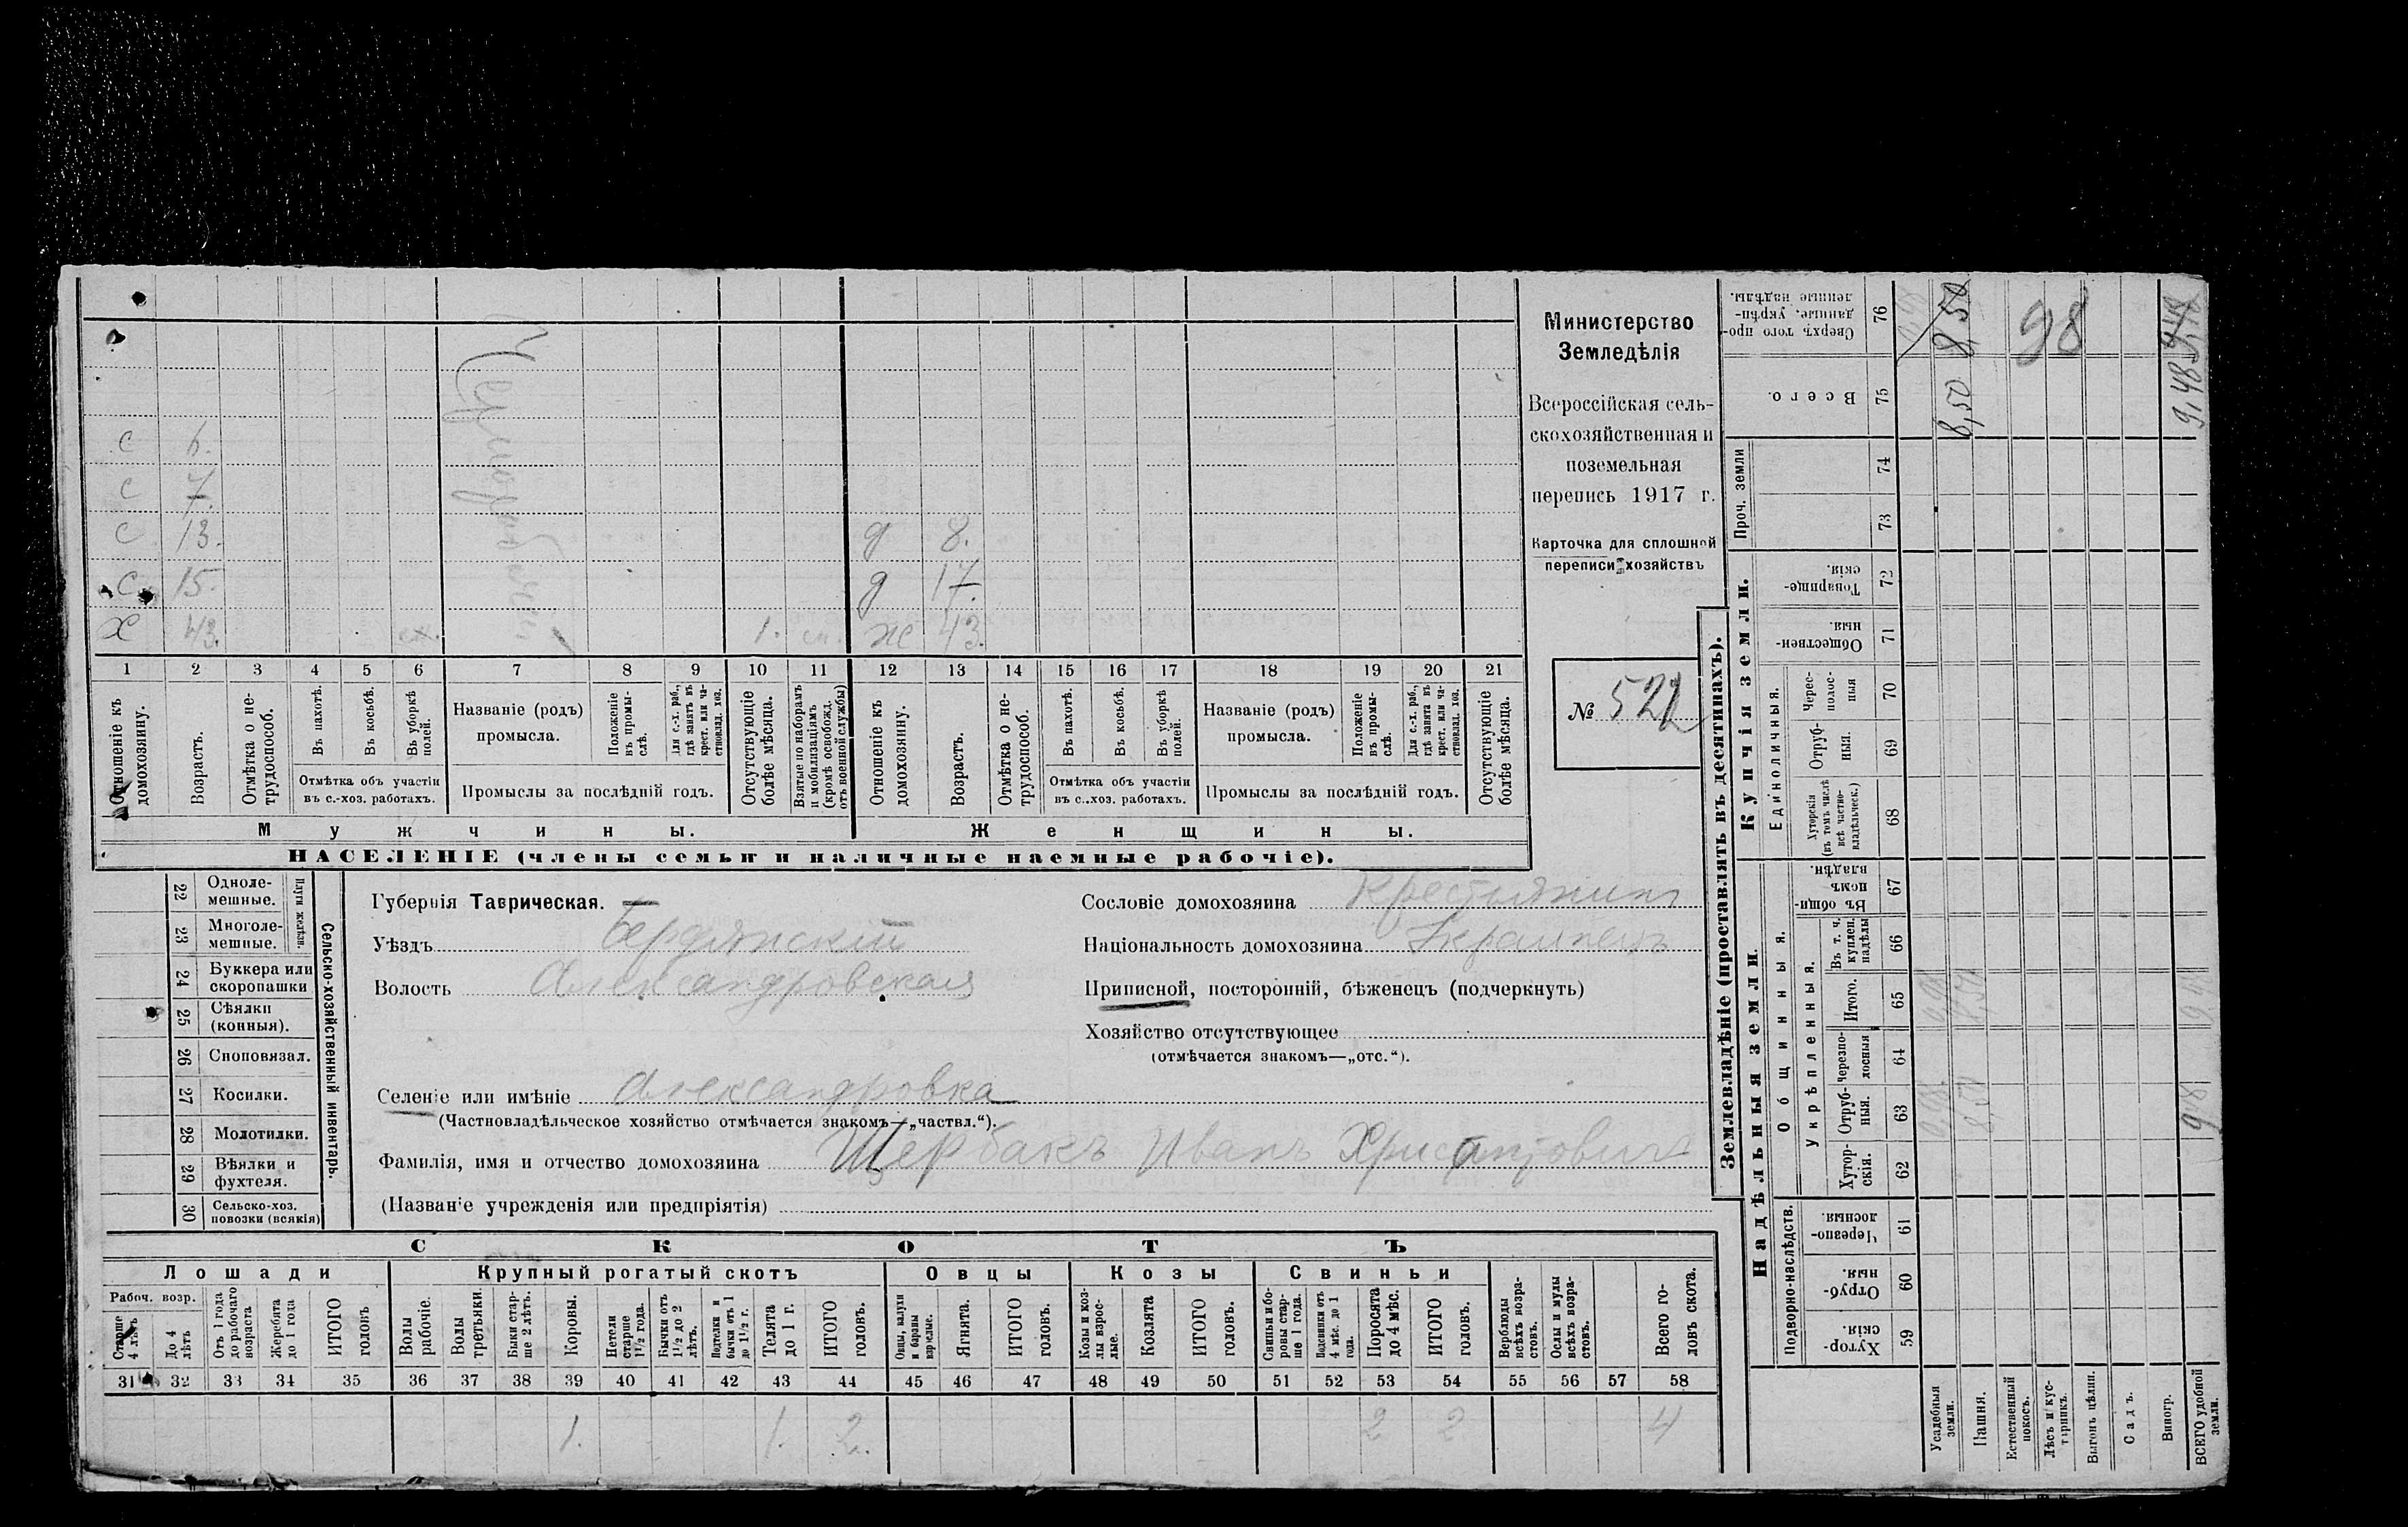 с 6.
с 7.
с 13. д 8.
с. 15. д 17.
х 43. 1. ж 43.
1 2 3 4 5 6 7 8 9 10 11 12 13 14 15 16 17 18 19 20 21
Отношеніе къ домохозяину.
Возрастъ.
Отмѣтка о не-
трудоспособ.
Въ пахотѣ.
Въ косьбѣ.
Въ уборкѣ полей.
Отмѣтка объ участіи
въ с.-хоз. работахъ.
Названіе (родъ)
промысла.
Положеніе въ промы-
слѣ.
Для с.-х. раб., гдѣ занятъ въ крест. или ча-
стновлад. хоз.
Промыслы за послѣдній годъ.
Отсутствующіе болѣе мѣсяца.
Взятые по наборамъ и мобилизаціямъ (кромѣ освобожд. отъ военной службы)
Отношеніе къ домохозяину.
Возрастъ.
Отмѣтка о не-
трудоспособ.
Въ пахотѣ.
Въ косьбѣ.
Въ уборкѣ полей.
Отмѣтка объ участіи
въ с..хоз. работахъ.
Названіе (родъ)
промысла.
Положеніе въ промы-
слѣ.
Для с.-х. раб., гдѣ занята въ крест. или ча-
стновлад. хоз.
Промыслы за послѣдній годъ.
Отсутствующіе болѣе мѣсяца.
Мужчины. Женщины.
НАСЕЛЕНІЕ (члены семьи и наличные наемные рабочіе).
Министерство
Земледѣлія
Всероссійская сель-
скохозяйственная и
поземельная
перепись 1917 г.
Карточка для сплошной
переписи хозяйствъ
№ 522
22 Одноле-
мешные.
23 Многоле-
мешные.
Плуги желѣзн.
24 Буккера или
скоропашки
25 Сѣялки
(конныя).
26 Сноповязал.
27 Косилки.
28 Молотилки.
29 Вѣялки и
фухтеля.
30 Сельско-хоз.
повозки (всякія)
Сельско-хозяйственный инвентарь.
Губернія Таврическая.
Уѣздъ Бердянскій
Волость Александровская
Селеніе или имѣніе Александровка
(Частновладѣльческое хозяйство отмѣчается знакомъ—„частвл.“).
Фамилія, имя и отчество домохозяина Щербакъ Иванъ
(Названіе учрежденія или предпріятія)
Сословіе домохозяина Крестьянинъ
Національность домохозяина Украинецъ
Приписной, посторонній, бѣженецъ (подчеркнуть)
Хозяйство отсутствующее
(отмѣчается знакомъ—„отс.“).
СКОТЪ
Лошади Крупный рогатый скотъ Овцы Козы Свиньи
Рабоч. возр.
Старше 4 лѣтъ
До 4 лѣтъ
Отъ 1 года до рабочаго возраста
Жеребята до 1 года
ИТОГО головъ
Волы рабочіе.
Волы третьяки.
Быки стар-
ше 2 лѣтъ.
Коровы.
Нетели старше 1½ года.
Бычки отъ 1½ до 2 лѣтъ.
Подтелки и бычки отъ 1 до 1½ г.
Телята до 1 г.
ИТОГО головъ.
Овцы, валухи и бараны взрослые.
Ягнята.
ИТОГО головъ.
Козы и коз-
лы взрос-
лые.
Козлята
ИТОГО головъ.
Свиньи и бо-
ровы стар-
ше 1 года.
Подсвинки отъ 4 мѣс. до 1 года.
Поросята до 4 мѣс.
ИТОГО головъ.
Верблюды всѣхъ возра-
стовъ.
Ослы и мулы всѣхъ возра-
стовъ.
Всего го-
ловъ скота.
31 32 33 34 35 36 37 38 39 40 41 42 43 44 45 46 47 48 49 50 51 52 53 54 55 56 57 58
1. 1. 2. 2 2 4
Землевладѣніе (проставлять въ десятинахъ).
Надѣльныя земли. Купчія земли.
Подворно-наслѣдств.
Хутор-
скія. 59
Отруб-
ныя. 60
Черезпо-
лосныя. 61
Общинныя.
Укрѣпленныя.
Хутор-
скія. 62
Отруб-
ныя. 63
Черезпо-
лосныя 64
Итого. 65
Въ т. ч. куплен. надѣлы 66
Въ общи-
номъ владѣн. 67
Единоличныя.
Хуторскія (въ томъ числѣ всѣ частно-
владѣльческ.) 68
Отруб-
ныя. 69
Черес-
полос-
ныя 70
Обществен-
ныя. 71
Товарище-
скія. 72
Проч. земли
73 74
Всего. 75
Сверхъ того про-
данные, укрѣп-
ленные надѣлы. 76
Усадебныя земли.
Пашня. 8,50 8,50 8,50 8,50
Естественный покосъ.
Лѣсъ и кус-
тарникъ.
98
Выгонъ цѣлин.
Садъ.
Виногр.
ВСЕГО удобной земли. 9,48